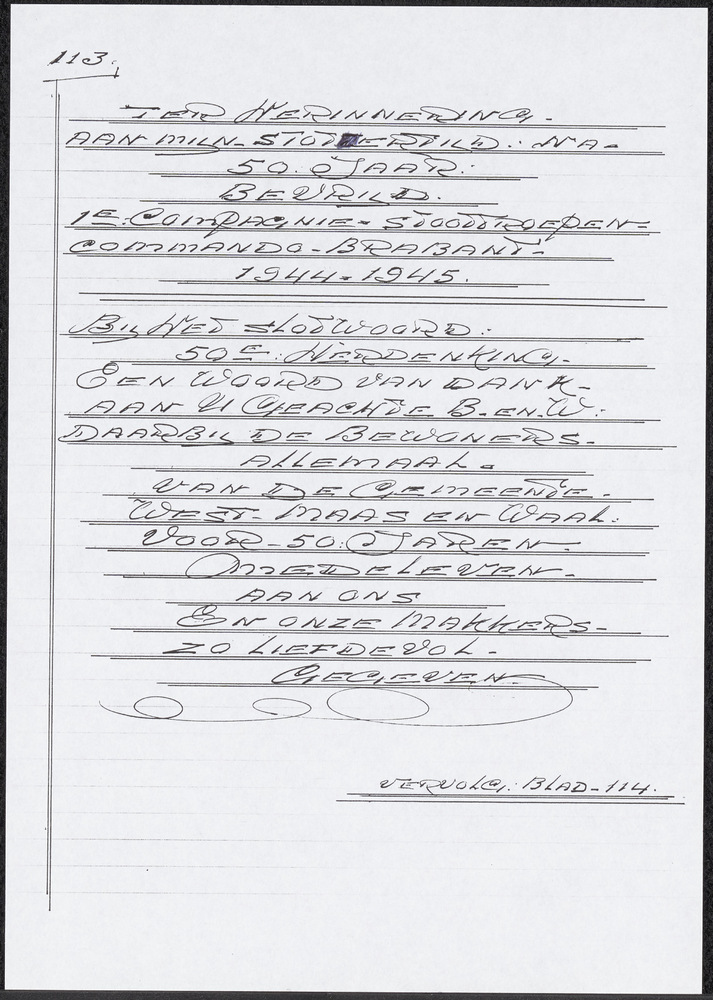 113.
TER HERINNERING.
AAN MIJN-STOOTERTIJD. NA.
50. JAAR.
BEVRIJD.
1E. COMPAGNIE - STOOTTROEPEN -
COMMANDO - BRABANT -
1944 - 1945.
BIJ HET SLOTWOORD:
50E. HERDENKING.
EEN WOORD VAN DANK -
AAN U GEACHTE B. EN. W:
DAARBIJ DE BEWONERS -
ALLEMAAL.
VAN DE GEMEENTE.
WEST - MAAS EN WAAL:
VOOR - 50. JAREN.
MEDELEVEN -
AAN ONS
EN ONZE MAKKERS -
ZO LIEFDEVOL -
GEGEVEN.
VERVOLG. BLAD - 114.